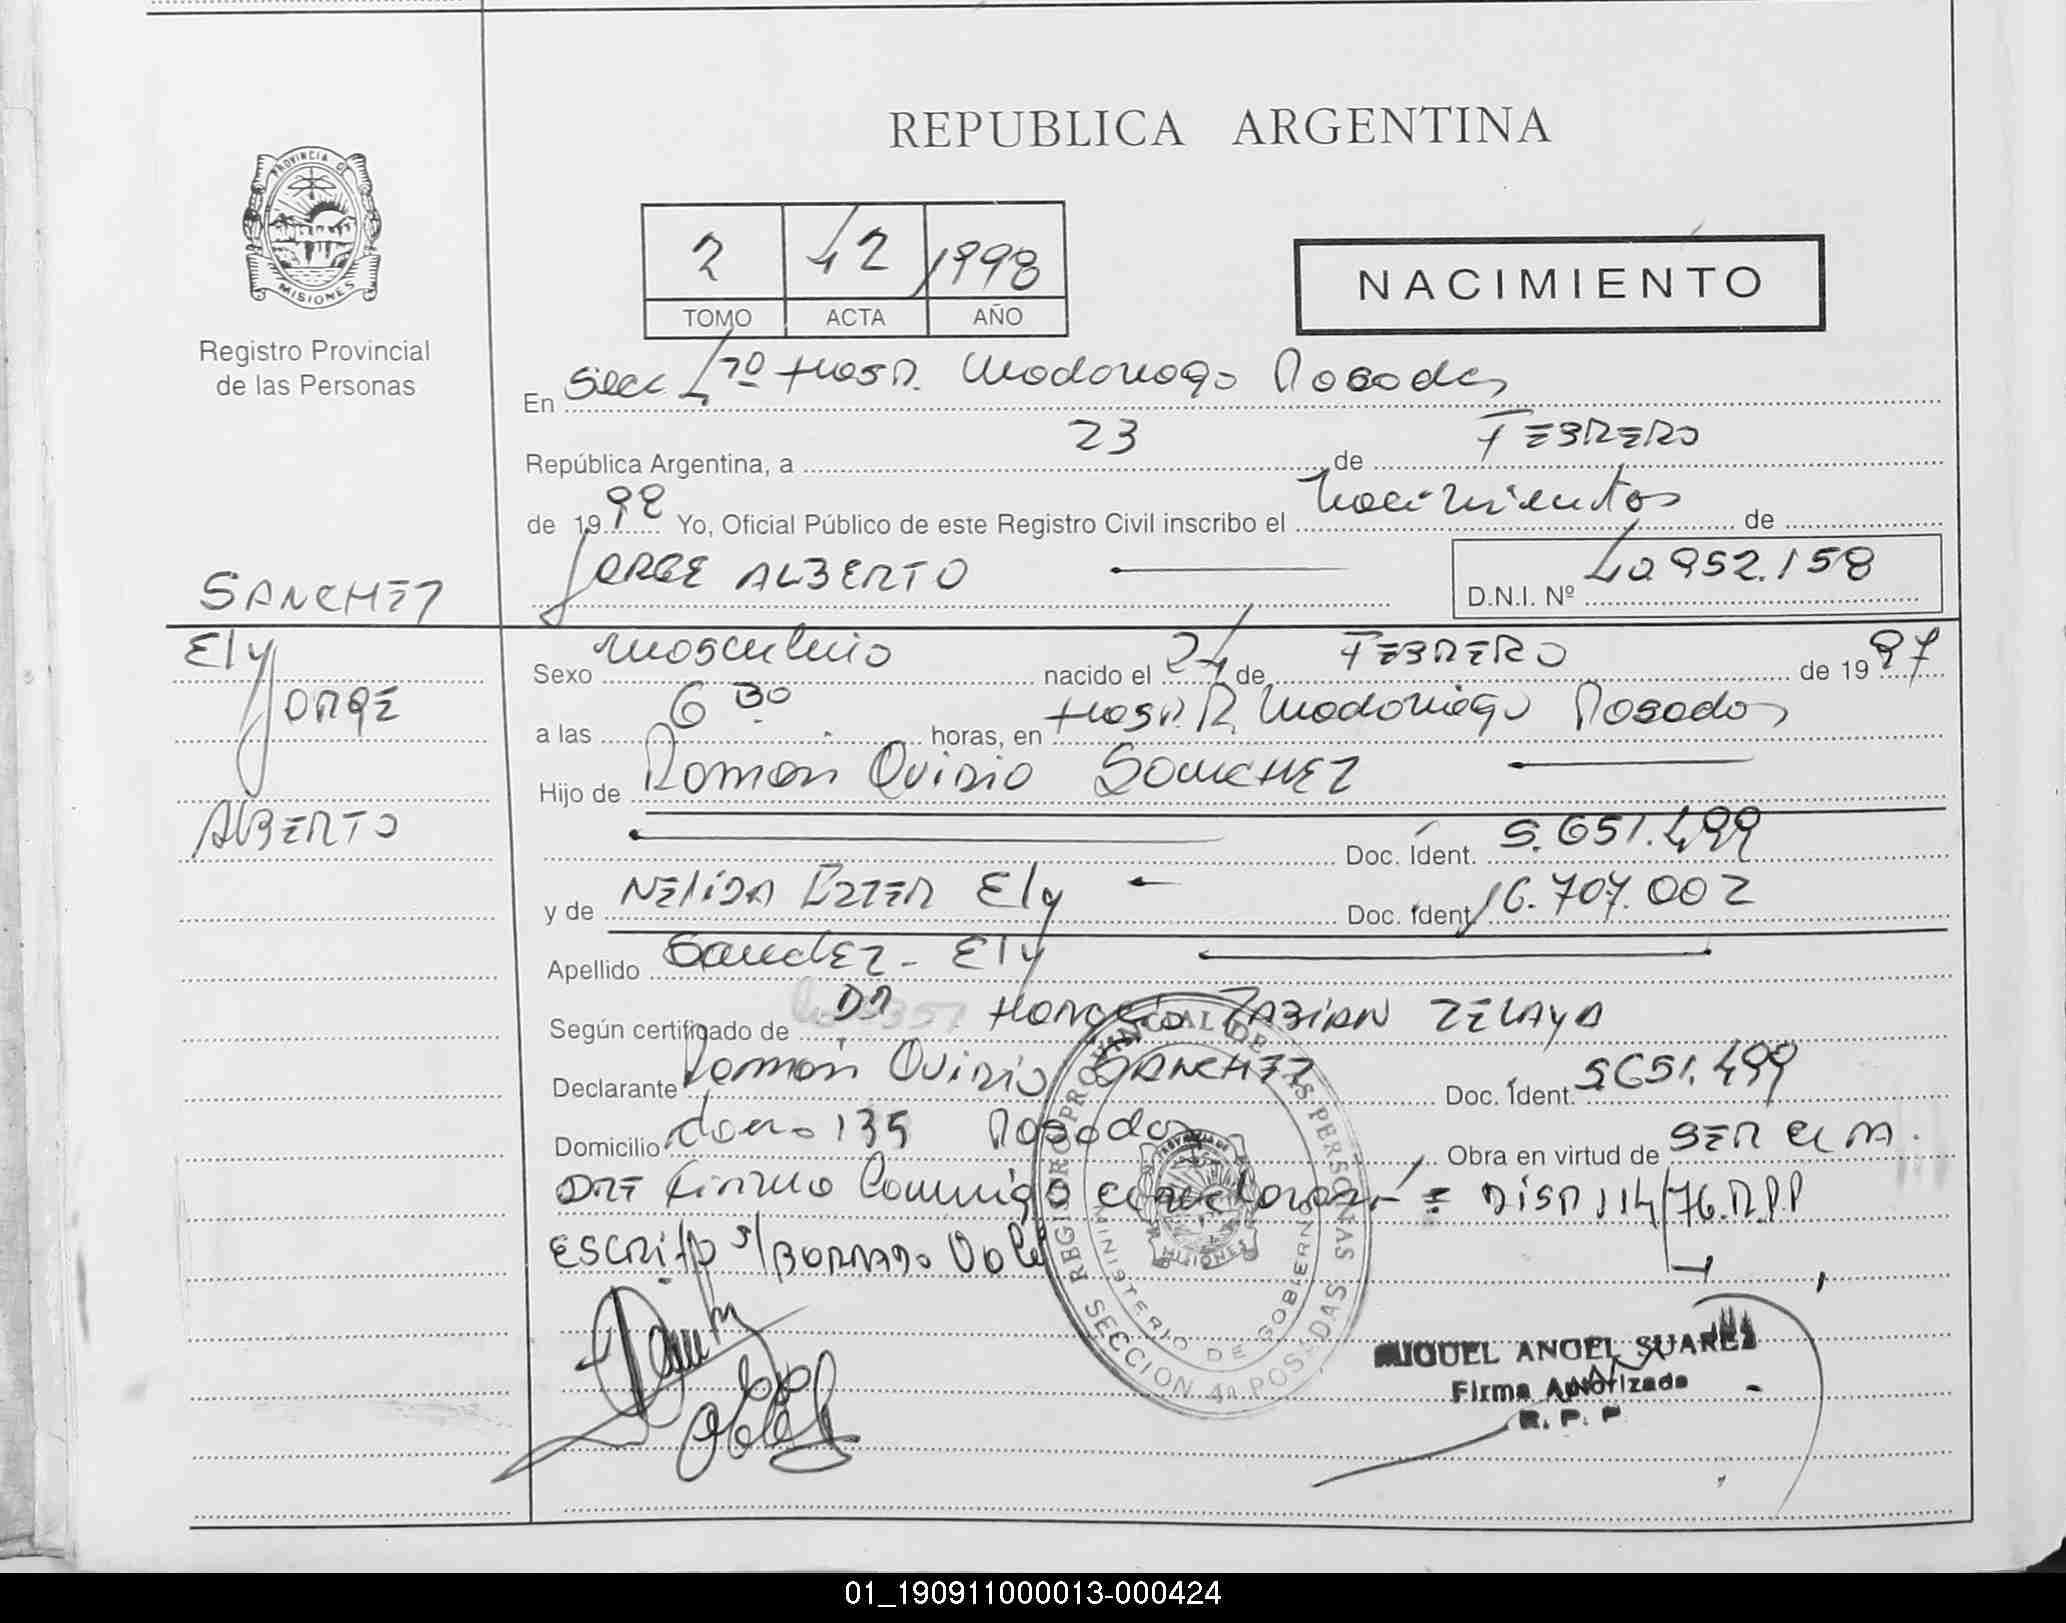 REPUBLICA ARGENTINA
PROVINCIA DE
MISIONES
Registro Provincial
de las Personas
2 42 1998
TOMO ACTA AÑO
NACIMIENTO
En Secc 4ta Hosp. Madariaga Posadas
República Argentina, a 23 de FEBRERO
de 1998 Yo, Oficial Público de este Registro Civil inscribo el Nacimientos de
JORGE ALBERTO
D.N.I. Nº 40.952.158
SANCHEZ
Ely
JORGE
ALBERTO
Sexo Masculino nacido el 24 de FEBRERO de 1997
a las 6 30 horas, en Hosp. R. Madariaga Posadas
Hijo de Ramon Quirio SANCHEZ
Doc. Ident. 5.651.499
y de NELIDA Ely Doc. Ident 16.707.002
Apellido Sanchez - Ely
Según certificado de DR HORACIO FABIAN ZELAYA
Declarante Ramón Quirio SANCHEZ Doc. Ident. 5.651.499
Domicilio 135 Posadas Obra en virtud de SER el PA
DRE firma Conmigo = DISP 114/76.R.P.P
ESCRITO S/BORRADO Vale
REGISTRO PROVINCIAL DE LAS PERSONAS
MINISTERIO DE GOBIERNO
SECCION 4a POSADAS
MISIONES
MIGUEL ANGEL SUAREZ
Firma Autorizada
R. P. P.
01_190911000013-000424